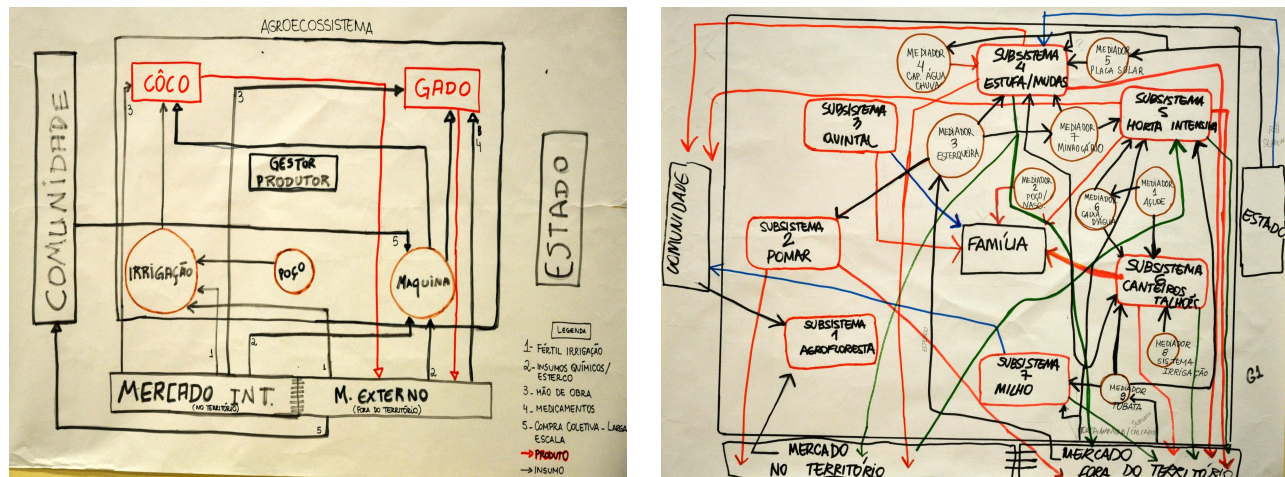 AGROECOSSISTEMA
COMUNIDADE
CÔCO
GADO
3
3
4
GESTOR
PRODUTOR
ESTADO
5
IRRIGAÇÃO
POÇO
MAQUINA
1
2
1
2
5
MERCADO INT.
(NO TERRITÓRIO)
M. EXTERNO
(FORA DO TERRITÓRIO)
LEGENDA
1- FÉRTIL IRRIGAÇÃO
2- INSUMOS QUÍMICOS/
ESTERCO
3 - MÃO DE OBRA
4 - MEDICAMENTOS
5- COMPRA COLETIVA - LARGA
ESCALA
PRODUTO
INSUMO
MEDIADOR
4
CAP. ÁGUA
CHUVA
SUBSISTEMA
4
ESTUFA/MUDAS
MEDIADOR
5
PLACA SOLAR
SUBSISTEMA
3
QUINTAL
MEDIADOR
3
ESTERQUEIRA
MEDIADOR
7
MINHOCÁRIO
SUBSISTEMA
5
HORTA INTENSIVA
COMUNIDADE
MEDIADOR
2
POÇO/
NASC.
MEDIADOR
6
CAIXA
D'ÁGUA
MEDIADOR
1
AÇUDE
ESTADO
SUBSISTEMA
2
POMAR
FAMÍLIA
SUBSISTEMA
6
CANTEIROS
TALHÕES
SUBSISTEMA
1
AGROFLORESTA
SUBSISTEMA
7
MILHO
MEDIADOR
8
SISTEMA
IRRIGAÇÃO
MEDIADOR
9
TOBATA
G1
MERCADO
NO TERRITÓRIO
MERCADO
FORA DO TERRITÓRIO